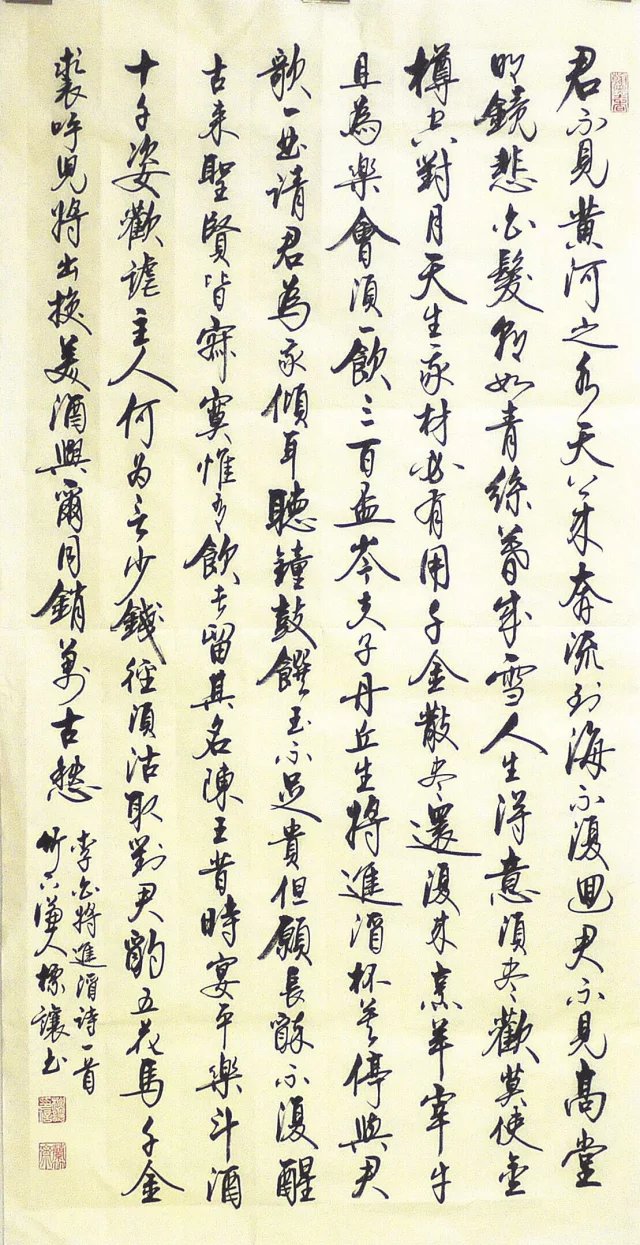 君不見黄河之水天上来奔流到海不復回君不見高堂
明鏡悲白髮朝如青絲暮成雪人生得意須尽歡莫使金
樽空對月天生我材必有用千金散尽還復来烹羊宰牛
且為樂會須一飲三百盃岑夫子丹丘生將進酒杯莫停與君
歌一曲請君為我傾耳聽鐘鼓饌玉不足貴但願長醉不復醒
古来聖賢皆寂寞惟有飲者留其名陳王昔時宴平樂斗酒
十千姿歡謔主人何为言少錢徑須沽取對君酌五花馬千金
裘呼児將出換美酒與爾同銷萬古愁
李白將進酒詩一首
竹下謙人讓书